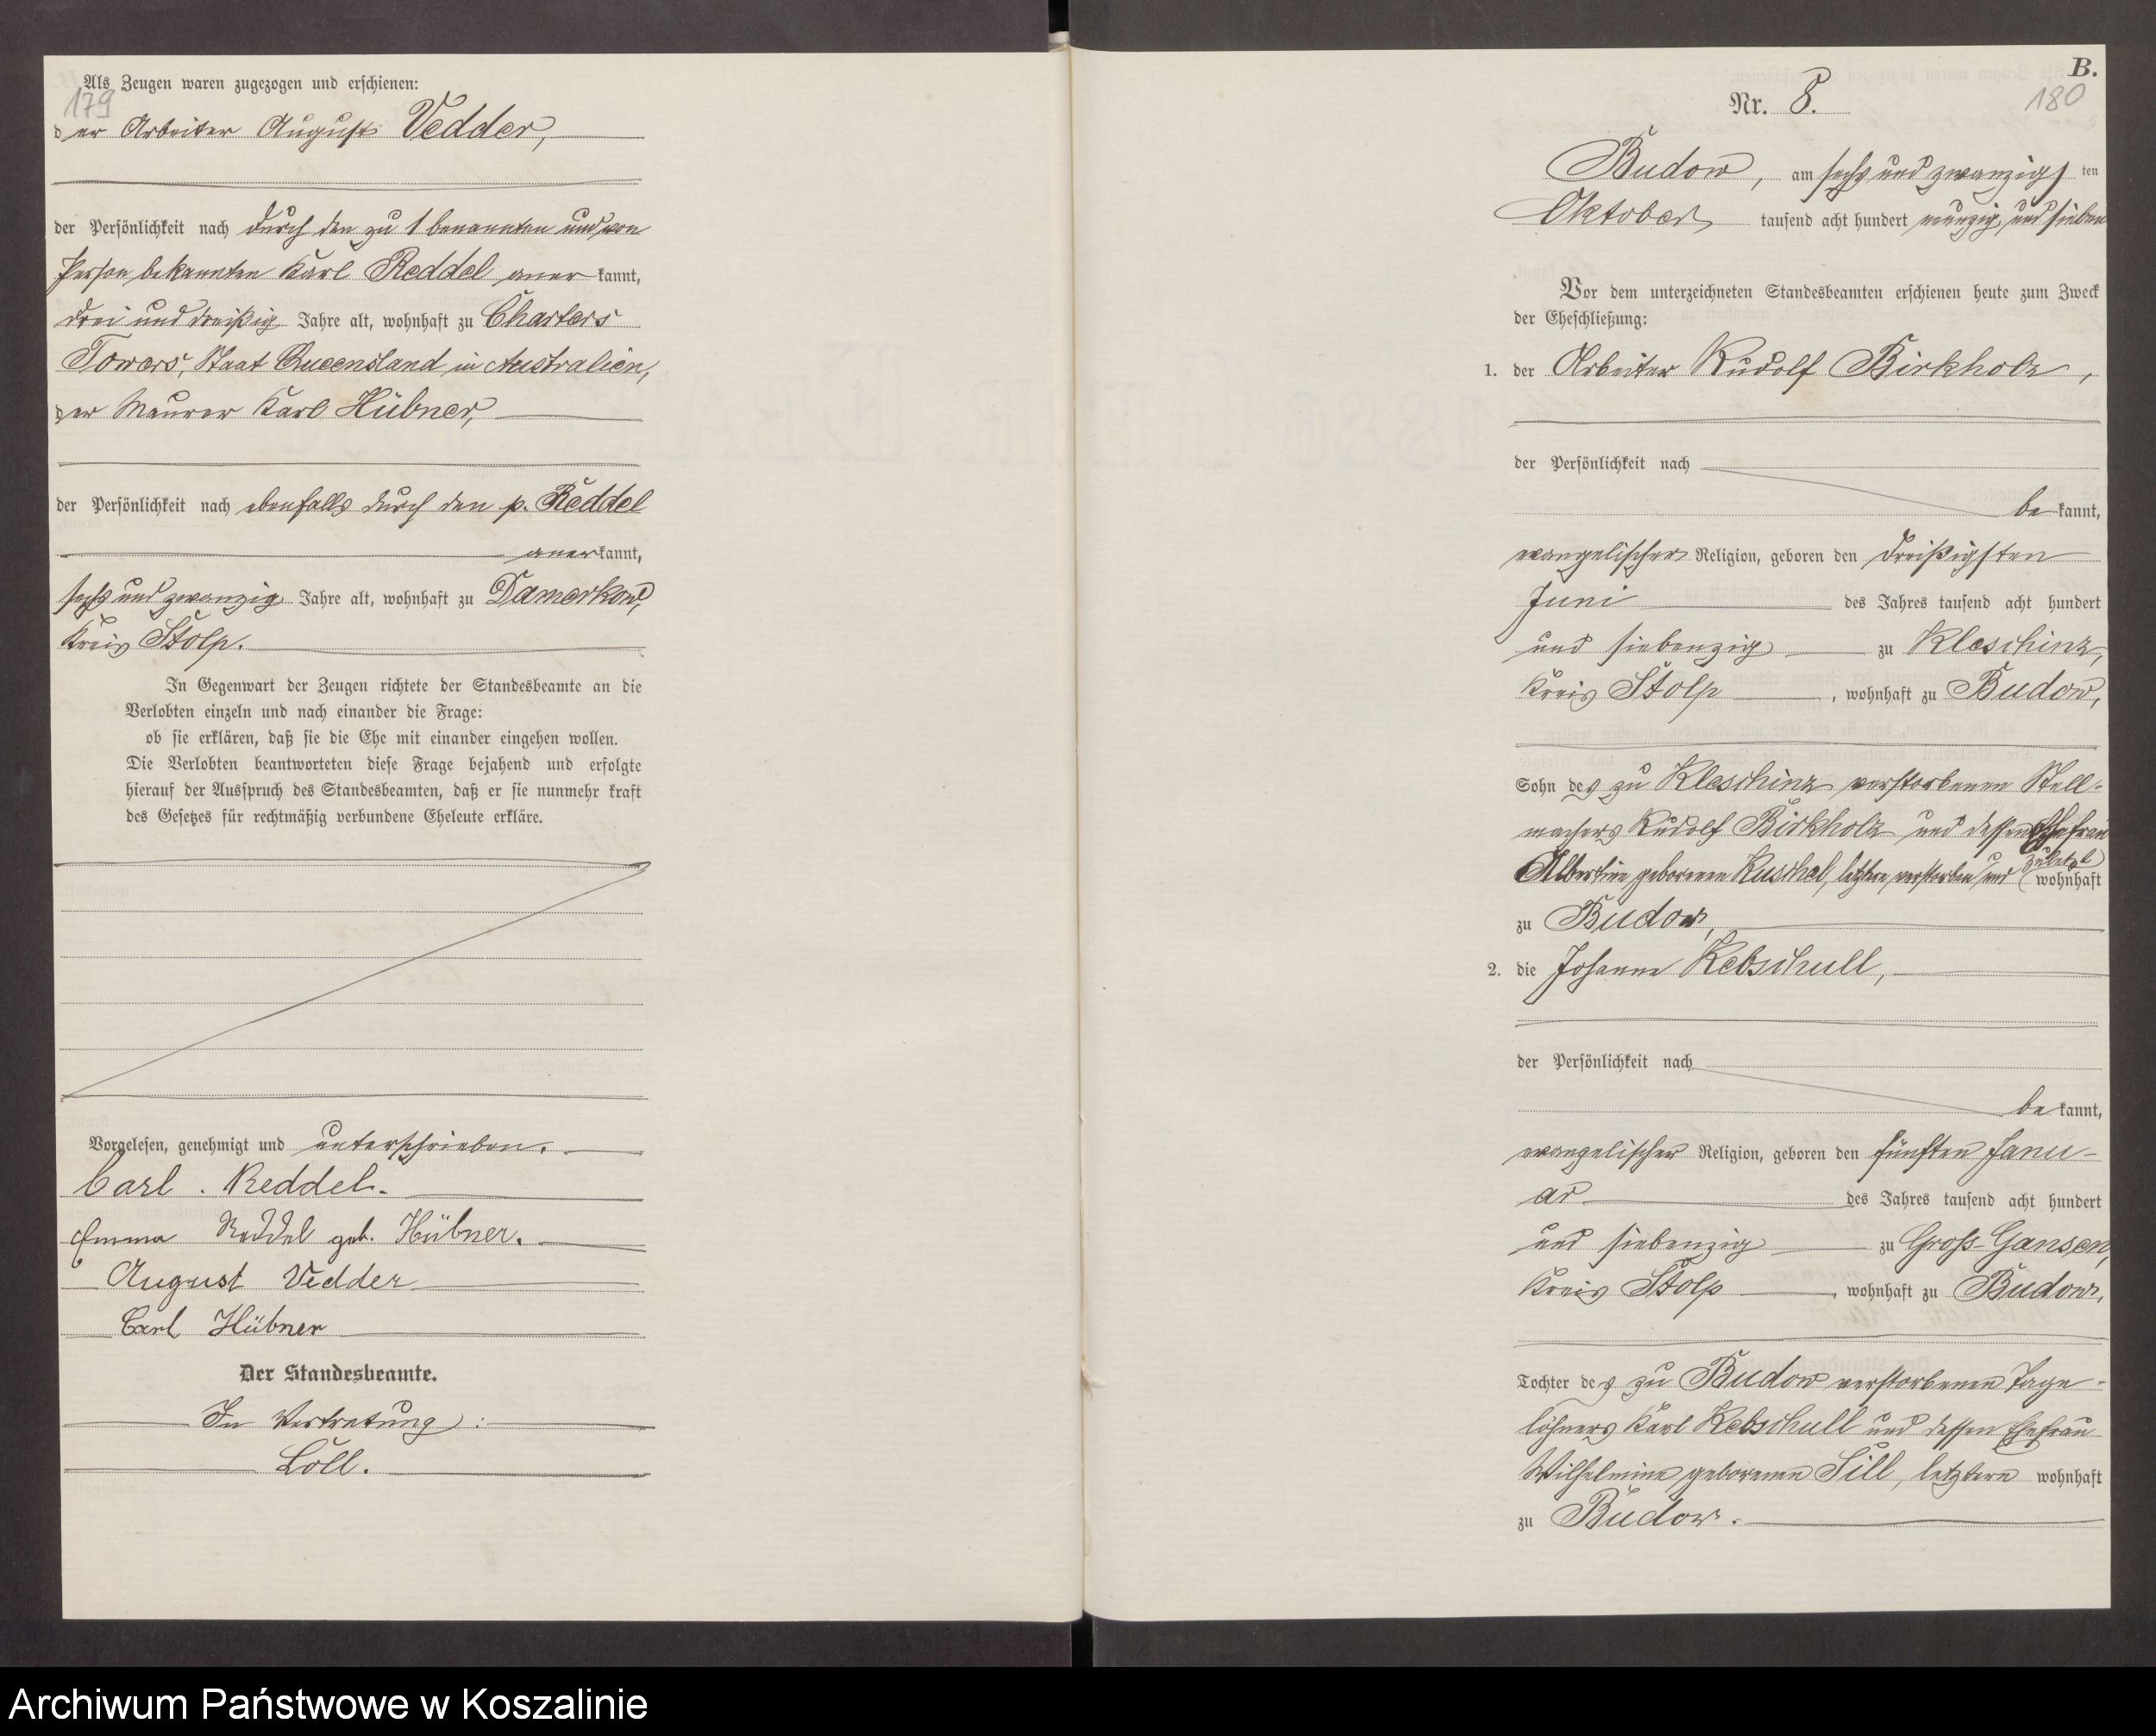 Als Zeugen waren zugezogen und erschienen:
179
der Arbeiter August Vedder,
der Persönlichkeit nach durch den zu 1 benannten und von
Person bekannten Karl Reddel anerkannt,
drei und dreißig Jahre alt, wohnhaft zu Charters
Towers, Staat Queensland in Australien,
der Maurer Karl Hübner,
der Persönlichkeit nach ebenfalls durch den p. Reddel
anerkannt,
sechs und zwanzig Jahre alt, wohnhaft zu Damerkow,
Kreis Stolp.
In Gegenwart der Zeugen richtete der Standesbeamte an die
Verlobten einzeln und nach einander die Frage:
ob sie erklären, daß sie die Ehe mit einander eingehen wollen.
Die Verlobten beantworteten diese Frage bejahend und erfolgte
hierauf der Ausspruch des Standesbeamten, daß er sie nunmehr kraft
des Gesetzes für rechtmäßig verbundene Eheleute erkläre.
Vorgelesen, genehmigt und unterschrieben.
Carl Reddel.
Emma Reddel geb. Hübner.
August Vedder
Carl Hübner
Der Standesbeamte.
In Vertretung:
Löll.
B.
180
Nr. 8.
Budow, am sechs und zwanzigsten
Oktober tausend acht hundert neunzig und sieben
Vor dem unterzeichneten Standesbeamten erschienen heute zum Zweck
der Eheschließung:
1. der Arbeiter Rudolf Birkholz,
der Persönlichkeit nach
bekannt,
evangelischer Religion, geboren den dreißigsten
Juni des Jahres tausend acht hundert
und siebenzig zu Kleschinz,
Kreis Stolp, wohnhaft zu Budow,
Sohn des zu Kleschinz verstorbenen Stell-
machers Rudolf Birkholz und dessen Ehefrau
Albertine geborenen Kuschel, letztere verstorben und (zuletzt) wohnhaft
zu Budow,
2. die Johanne Kebschull,
der Persönlichkeit nach
bekannt,
evangelischer Religion, geboren den fünften Janu-
ar des Jahres tausend acht hundert
und siebenzig zu Groß-Gansen,
Kreis Stolp, wohnhaft zu Budow,
Tochter des zu Budow verstorbenen Tage-
löhners Karl Kebschull und dessen Ehefrau
Wilhelmine geborenen Sill, letztere wohnhaft
zu Budow.
Archiwum Państwowe w Koszalinie